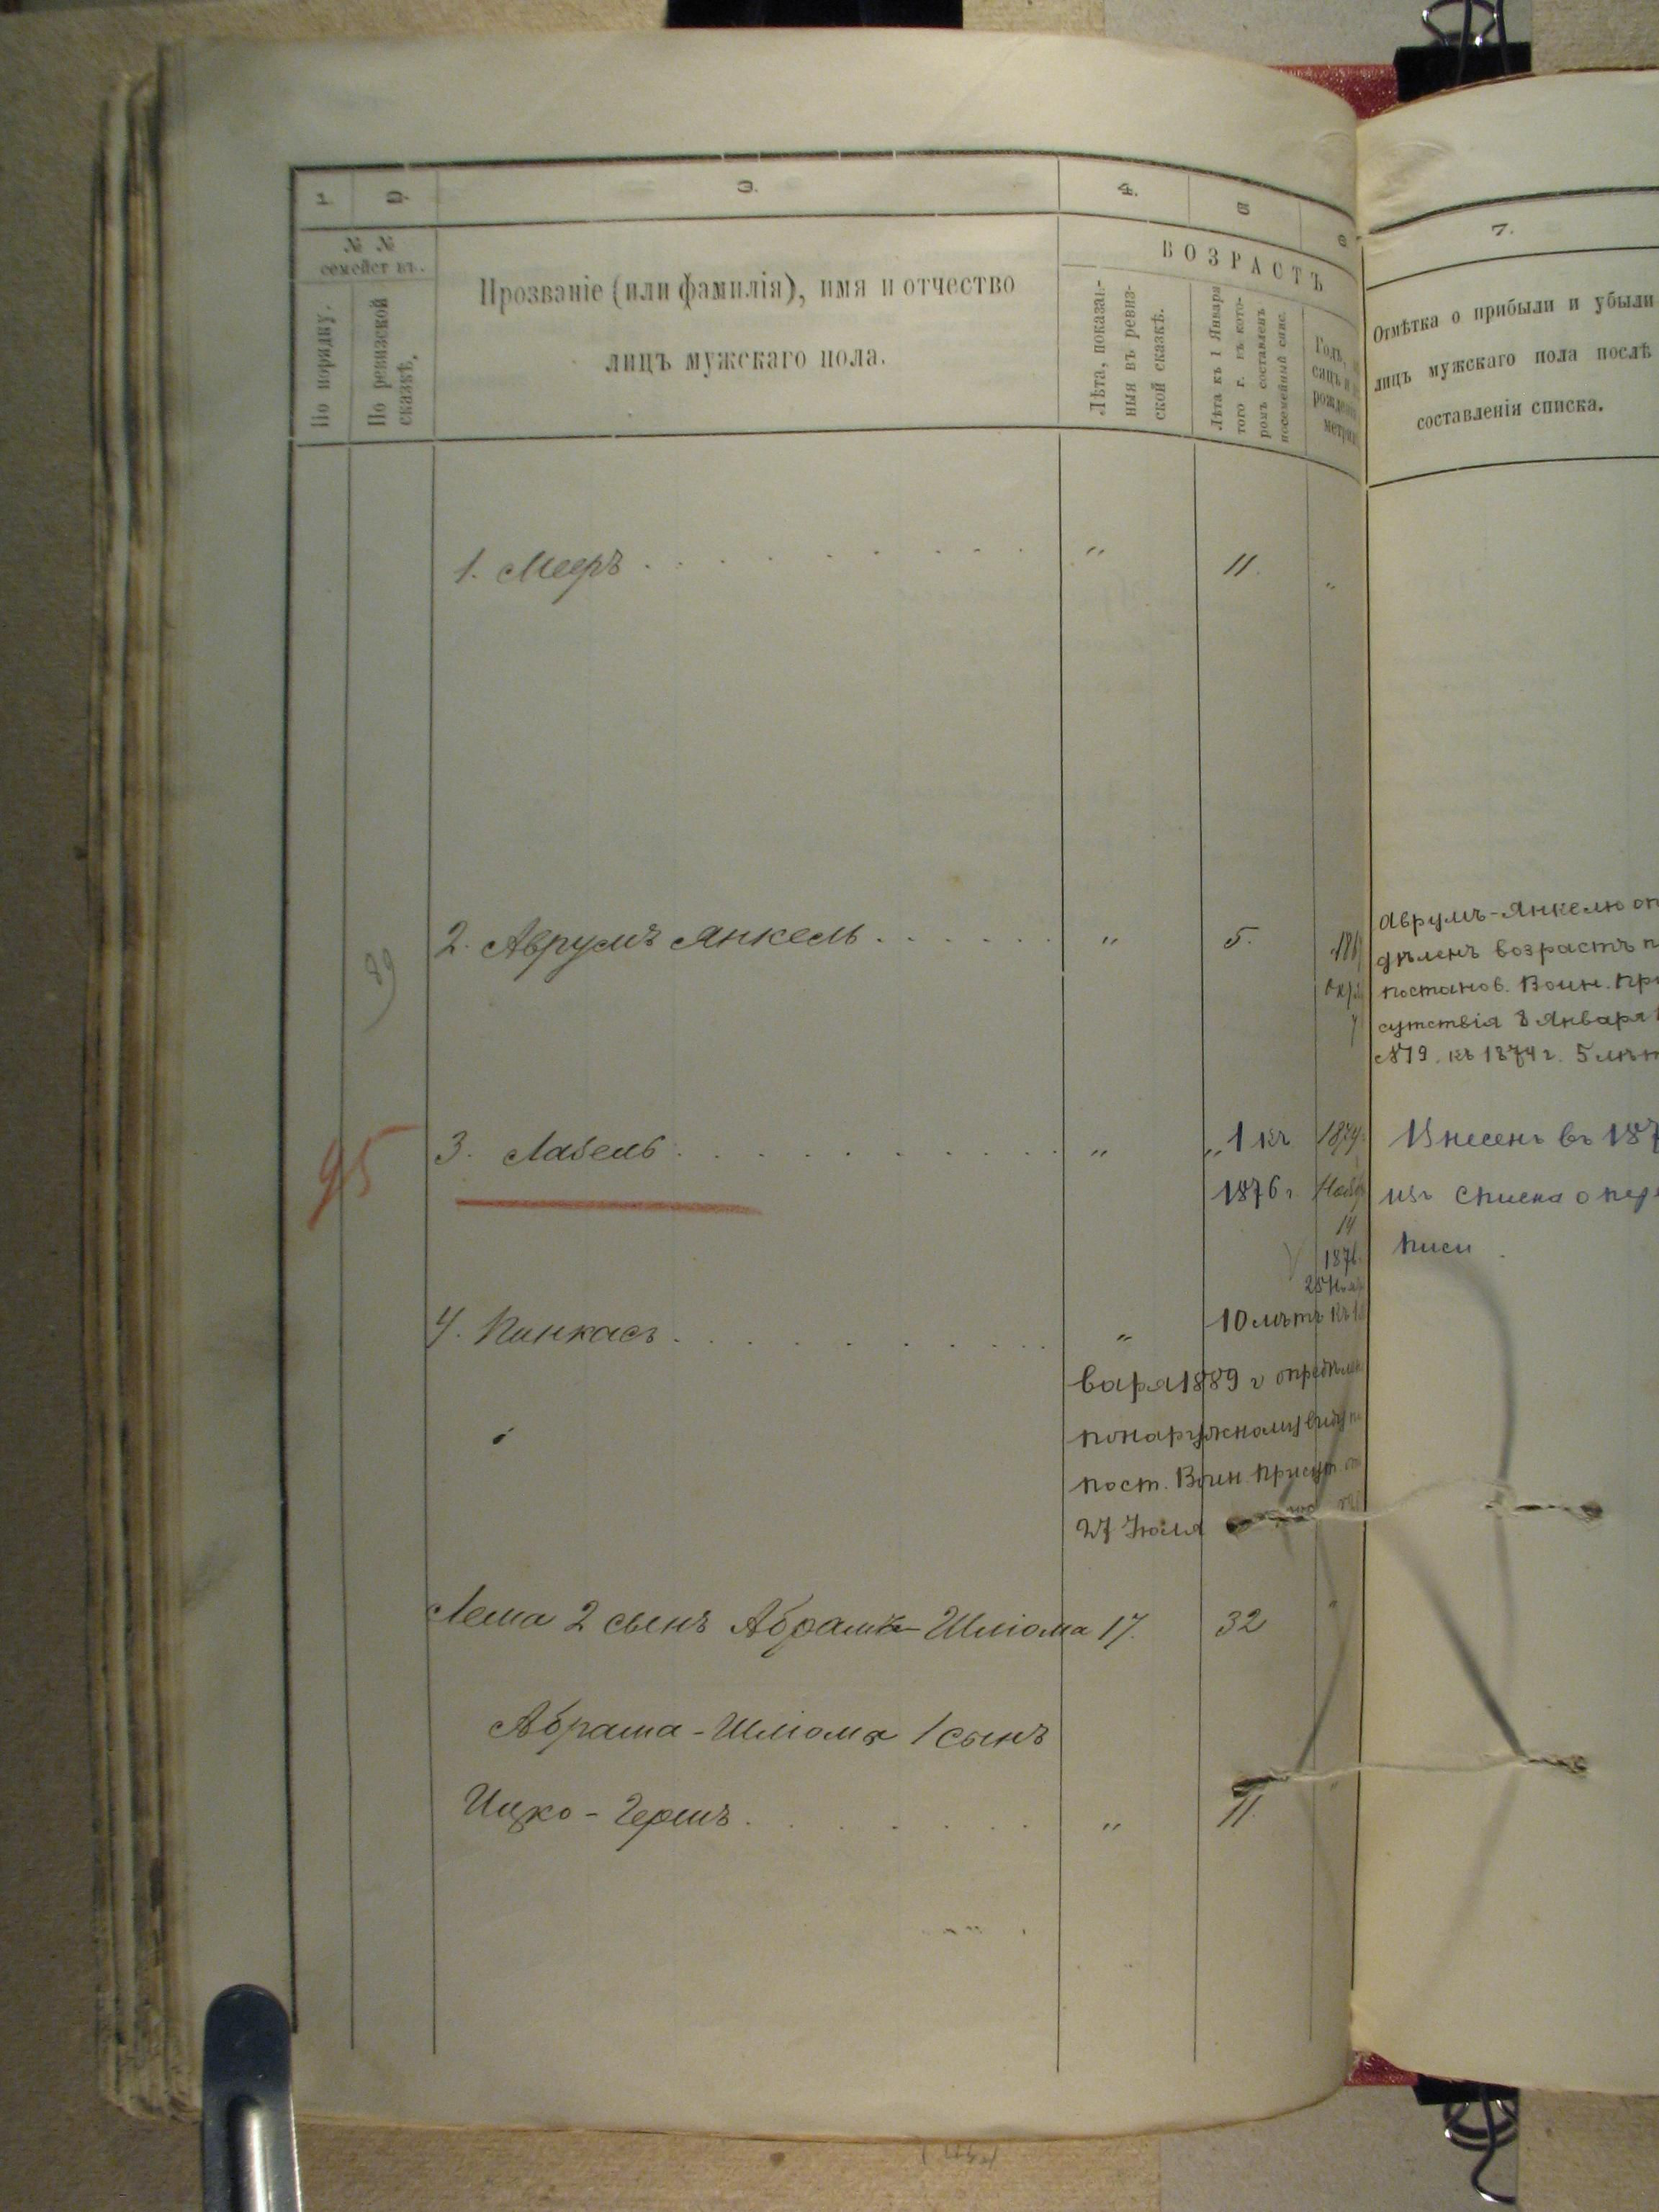 1.
2.
3.
4.
5
6
7.
№ №
семействъ.
По порядку.
По ревизской
сказкѣ.
Прозваніе (или фамилія), имя и отчество
лицъ мужскаго пола.
ВОЗРАСТЪ
Лѣта, показан-
ныя въ ревиз-
ской сказкѣ.
Лѣта къ 1 Января
того г. въ кото-
ромъ составленъ
посемейный спис.
Годъ,
сяцъ и
рожденія
метрик
Отмѣтка о прибыли и убыли
лицъ мужскаго пола послѣ
составленія списка.
1. Мееръ . . . . . . . . . " 11. "
2. Аврумъ Янкель . . . . . . " 5.
89
Аврумъ-Янкелю оп
дѣленъ возрастъ п
постанов. Воин. при
сутствія 8 Января
№19. къ 1874 г. 5 лѣт
95
3. Лабель . . . . . . . . . . . " " 1 къ 1874
1876 г. Нояб
14
1876
25 Нояб
Внесенъ въ 187
изъ списка о пере
писи
4. Пинкасъ . . . . . . . . . " 10 лѣтъ къ 1
варя 1889 г опредѣлен
по наружному виду
пост. Воин. присут. от
27 Іюля
Лема 2 сынъ Абрамъ-Шліома 17. 32 "
Абрама-Шліома 1 сынъ
Ицко-Гершъ . . . . . . . " 11. "